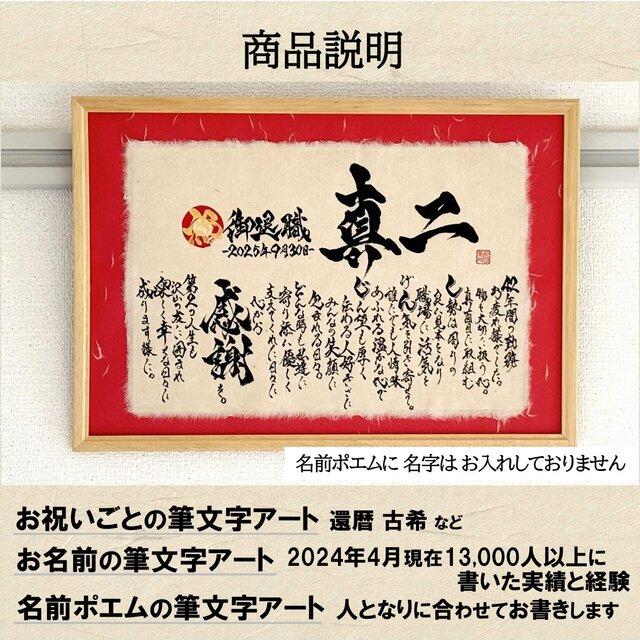 商品説明
真二
御退職
-2025年9月30日-
お疲れ様でした。
物を大切に扱う心。
真面目に取組む
し勢は周りの
良い見本となり
職場に活気を
誰にでも人情味
あふれる温かな心が
じん望も厚く
みんなの笑顔に
包まれる日々。
どんな時も家族に
寄り添い優しく
支えてくれた日々に
心から
感謝を。
第2の人生も
沢山の友に囲まれ
楽しく幸せな日々に
成ります様に。
名前ポエムに 名字は お入れしておりません
お祝いごとの筆文字アート 還暦 古希 など
お名前の筆文字アート 2024年4月現在13,000人以上に
書いた実績と経験
名前ポエムの筆文字アート 人となりに合わせてお書きします